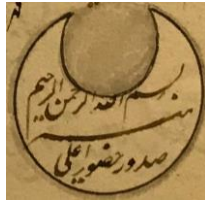 بسم الله الرحمن الرحیم
صدور حضور اعلی